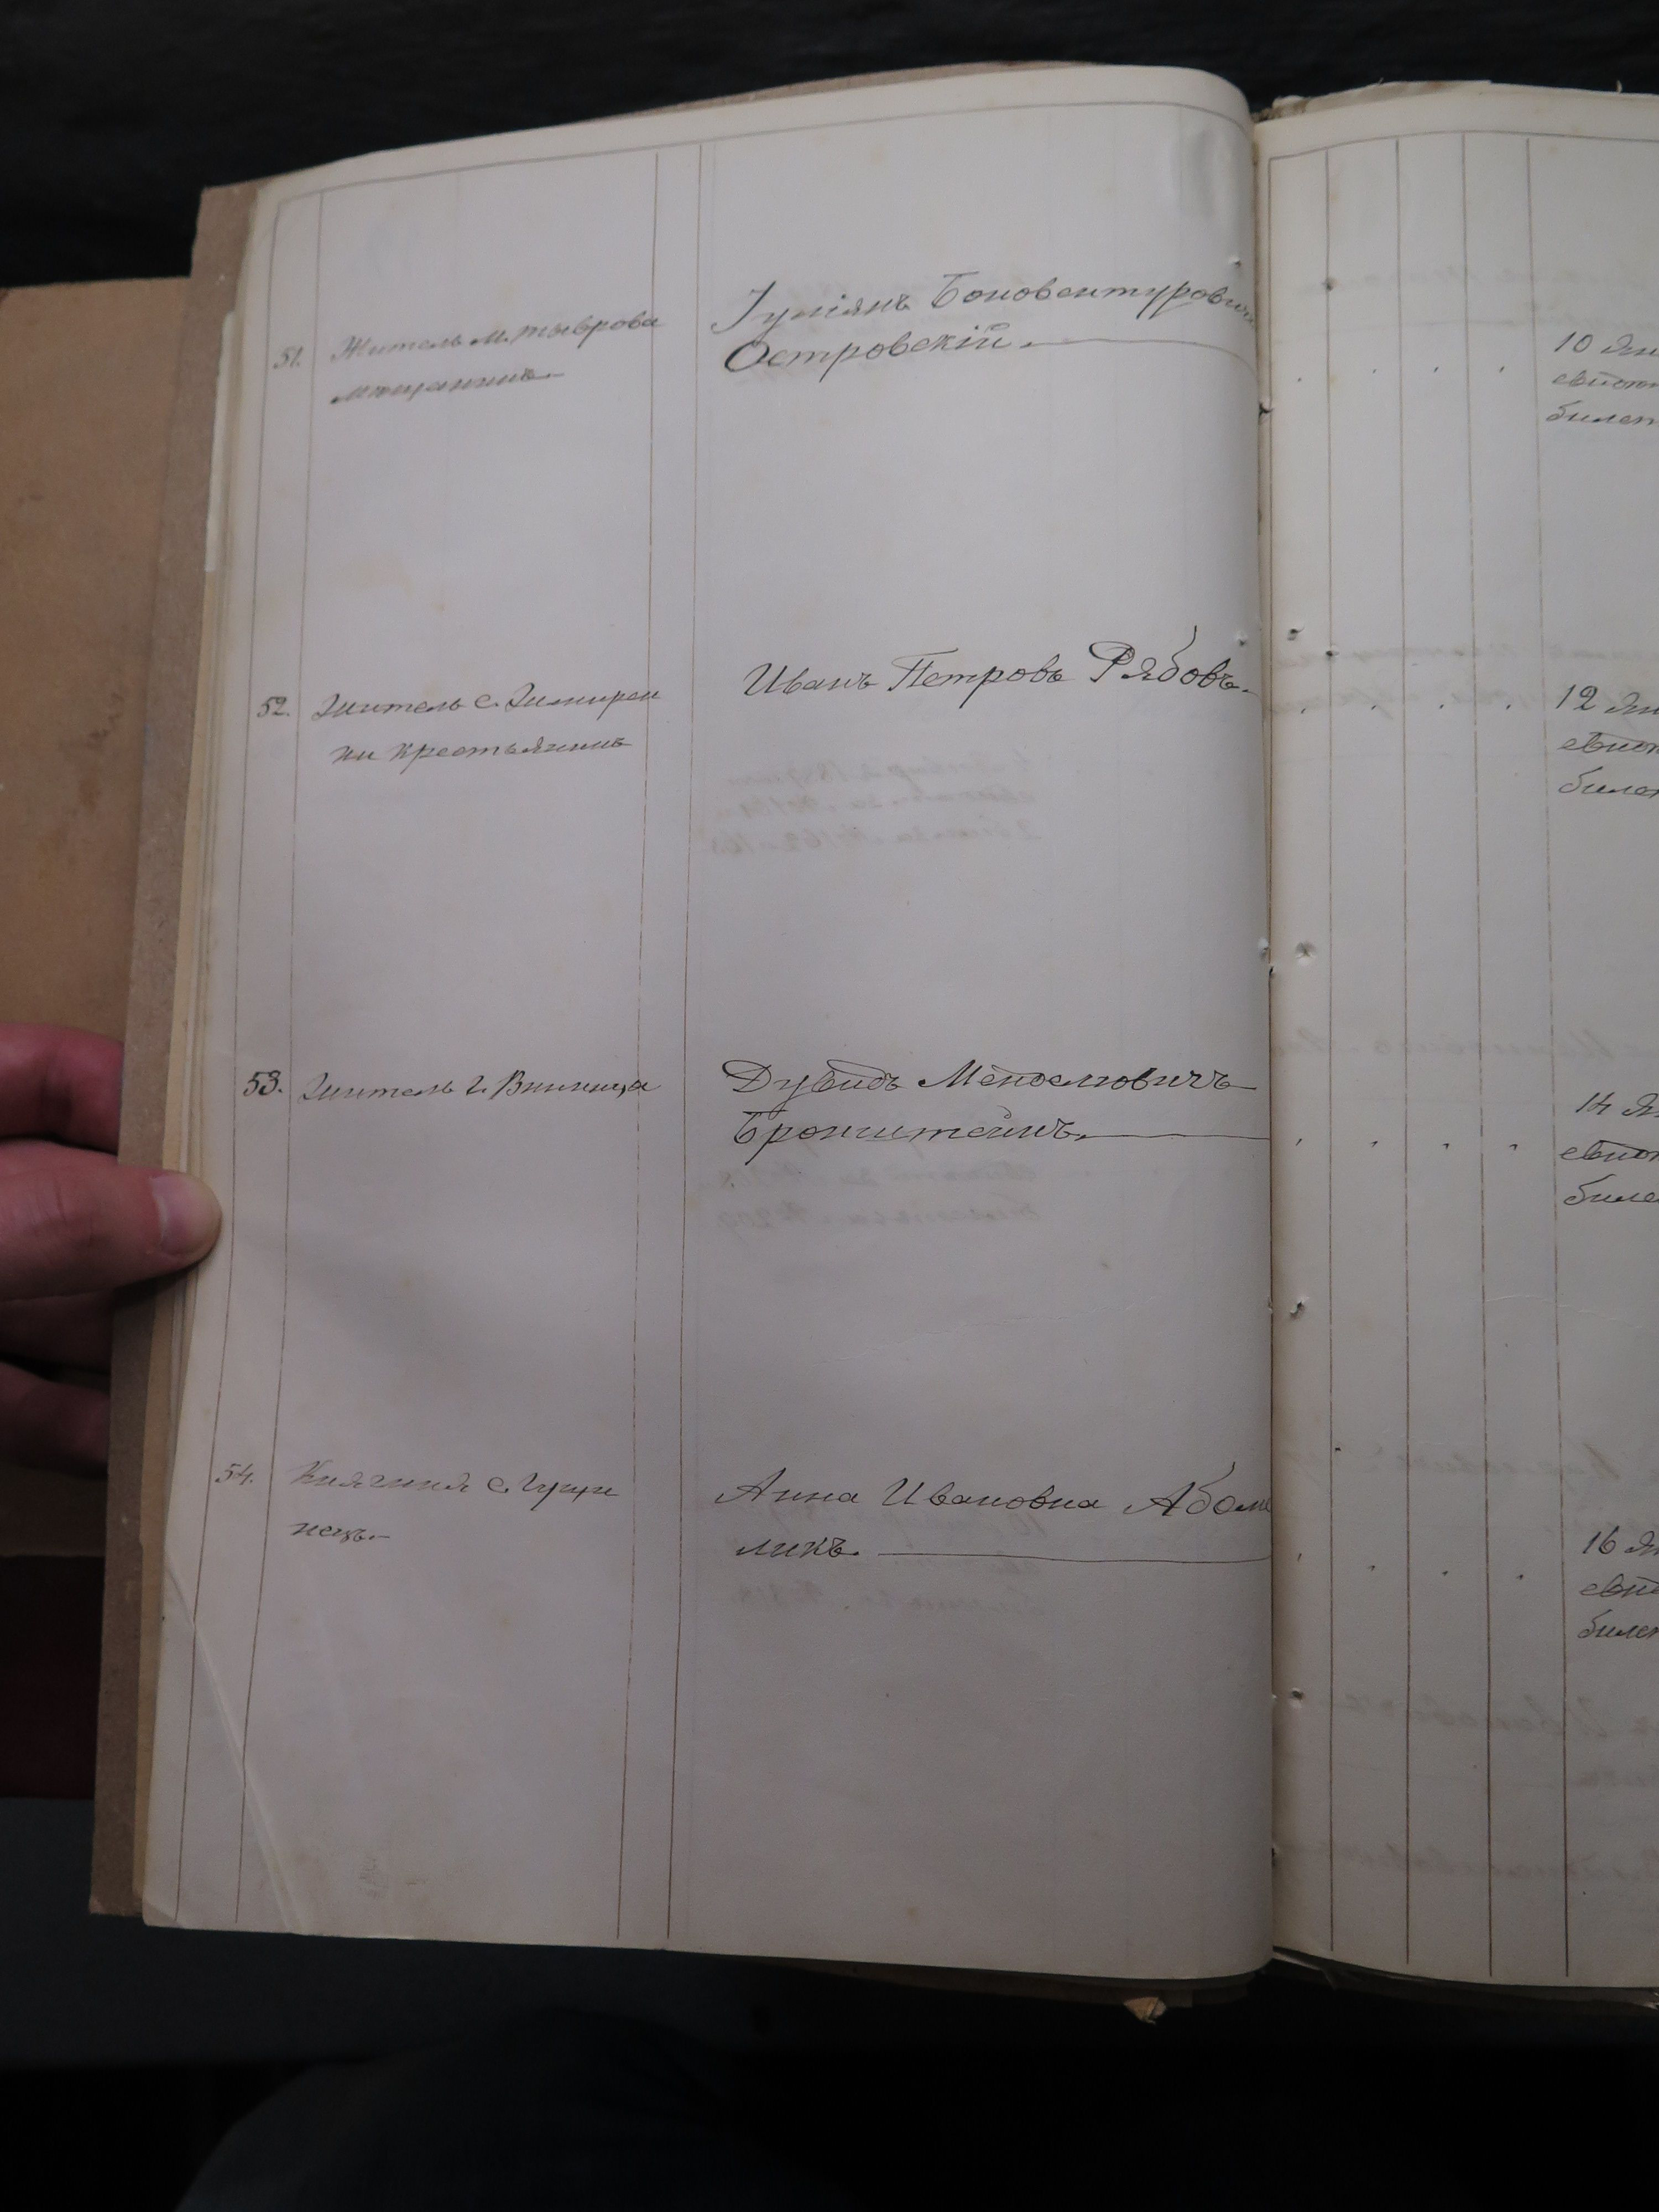 51. Житель м. Тыврова
мѣщанинъ.
Іуліянъ Боновентурович
Островскій.
10 Ян
свидѣт
билет
52. Житель с.
ни крестьянинъ
Иванъ Петровъ Рябовъ.
12 Ян
свидѣт
билет
53. Житель г. Винница
Дувидъ Менделювичъ
Бронштейнъ.
14 Ян
свидѣт
биле
54. Княгиня с. Гущи
нецъ.
Анна Ивановна Абаме
ликъ.
16 Ян
свидѣ
билет